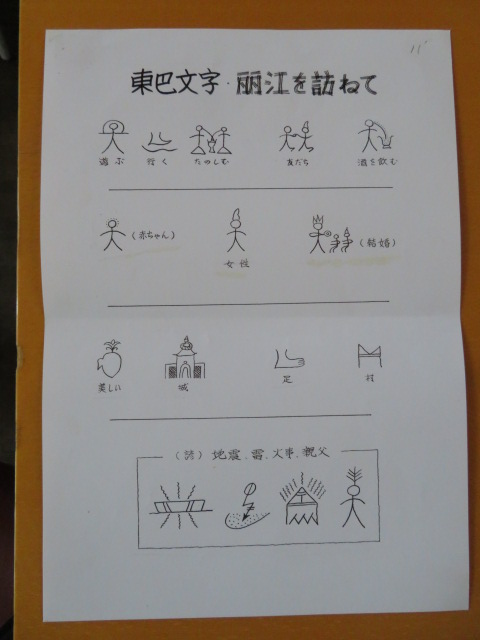 東巴文字・丽江を訪ねて
遊ぶ 行く たのしむ 友だち 酒を飲む
(赤ちゃん) (結婚)
女性
美しい 城 足 村
(諺) 地震、雷、火事、親父